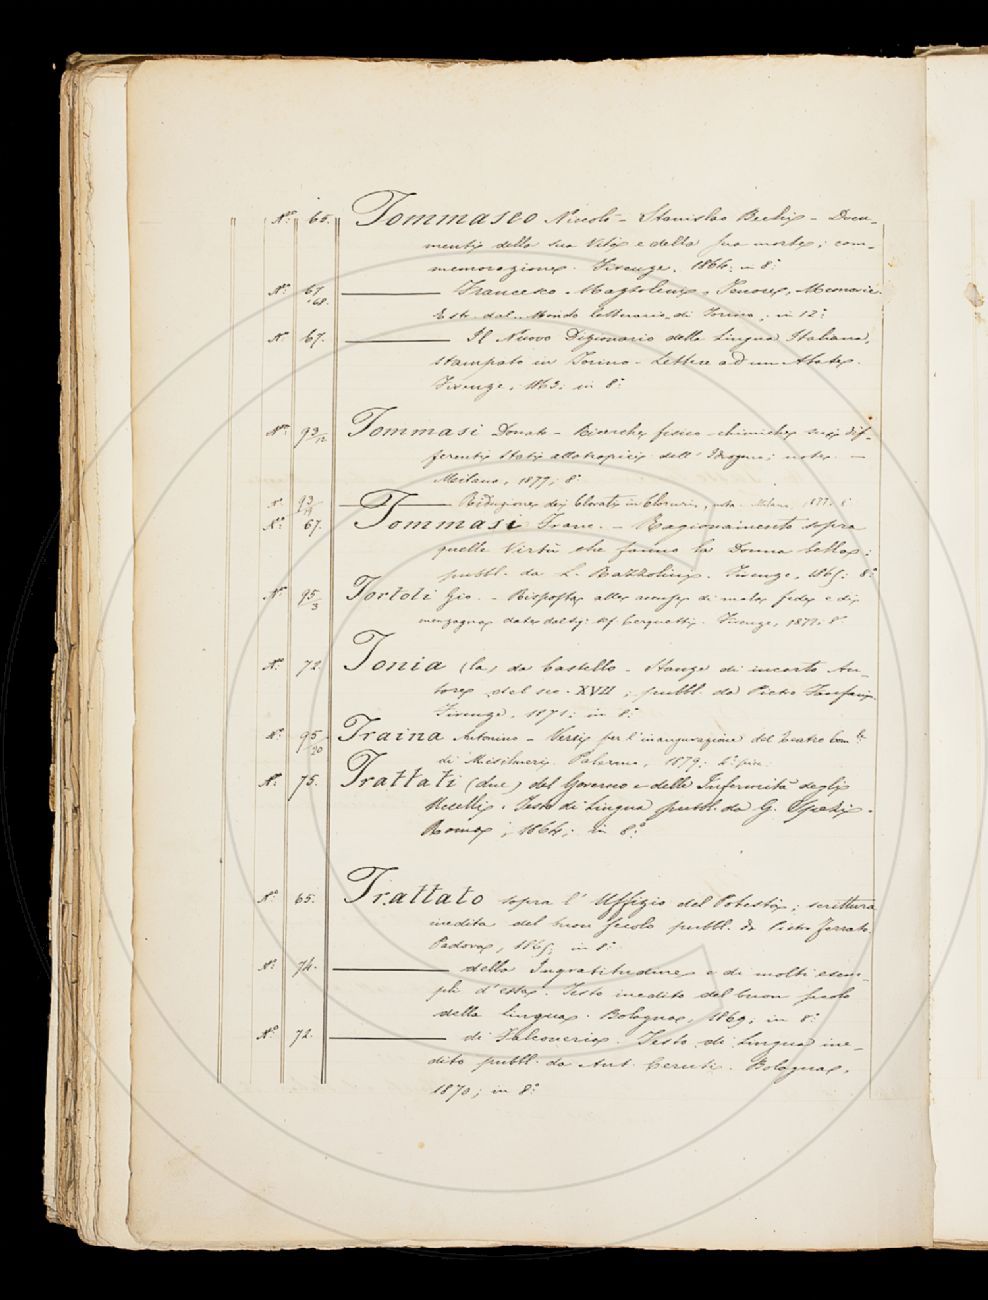 N.º 65. Tommaseo Niccolò - Stanislao Bechi - Docu-
menti della sua Vita e della sua morte; com-
memorazione. Firenze, 1864; in 8.º
N.º 67/68. ——— Francesco Mazzoleni, Tenore, Memorie.
Estr. dal Mondo letterario di Torino; in 12.º
N.º 67. ——— Il Nuovo Dizionario della Lingua Italiana,
stampato in Torino - Lettere ad un Abate.
Firenze, 1863; in 8.º
N.º 93/12 Tommasi Donato - Ricerche fisico-chimiche sui dif-
ferenti Stati allotropici dell'Idrogeno; nota. —
Milano, 1877; 8.º
N.º 93 ——— Riduzione dei Clorati in Cloruri, nota. Milano, 1877. 8.º
N.º 67. Tommasi Franc. - Ragionamento sopra
quelle Virtù che fanno la Donna bella;
pubbl. da L. Razzolini. Firenze, 1865; 8.º
N.º 95/3 Tortoli Gio. - Risposta alle accuse di mala fede e di
menzogna date dal Sig. Cerquetti. Firenze, 1877; 8.º
N.º 72 Tonia (la) da Castello - Stanze di incerto Au-
tore del sec. XVII; pubbl. da Pietro Fanfani.
Firenze, 1871; in 8.º
N.º 95/20 Traina Antonino - Versi per l'inaugurazione del Teatro Com.le
di Misilmeri. Palermo, 1879; 4.º picc.
N.º 75. Trattati (due) del Governo e delle Infermità degli
Uccelli. Testo di Lingua pubbl. da G. Spezi.
Roma, 1864; in 8.º
N.º 65. Trattato sopra l'Uffizio del Potestà; scrittura
inedita del buon secolo pubbl. da Pietro Ferrato.
Padova, 1865; in 8.º
N.º 74. ——— della Ingratitudine e di molti esem-
pli d'essa. Testo inedito del buon secolo
della lingua. Bologna, 1869, in 8.º
N.º 72. ——— di Falconeria. Testo di Lingua ine-
dito pubbl. da Ant. Ceruti. Bologna,
1870; in 8.º